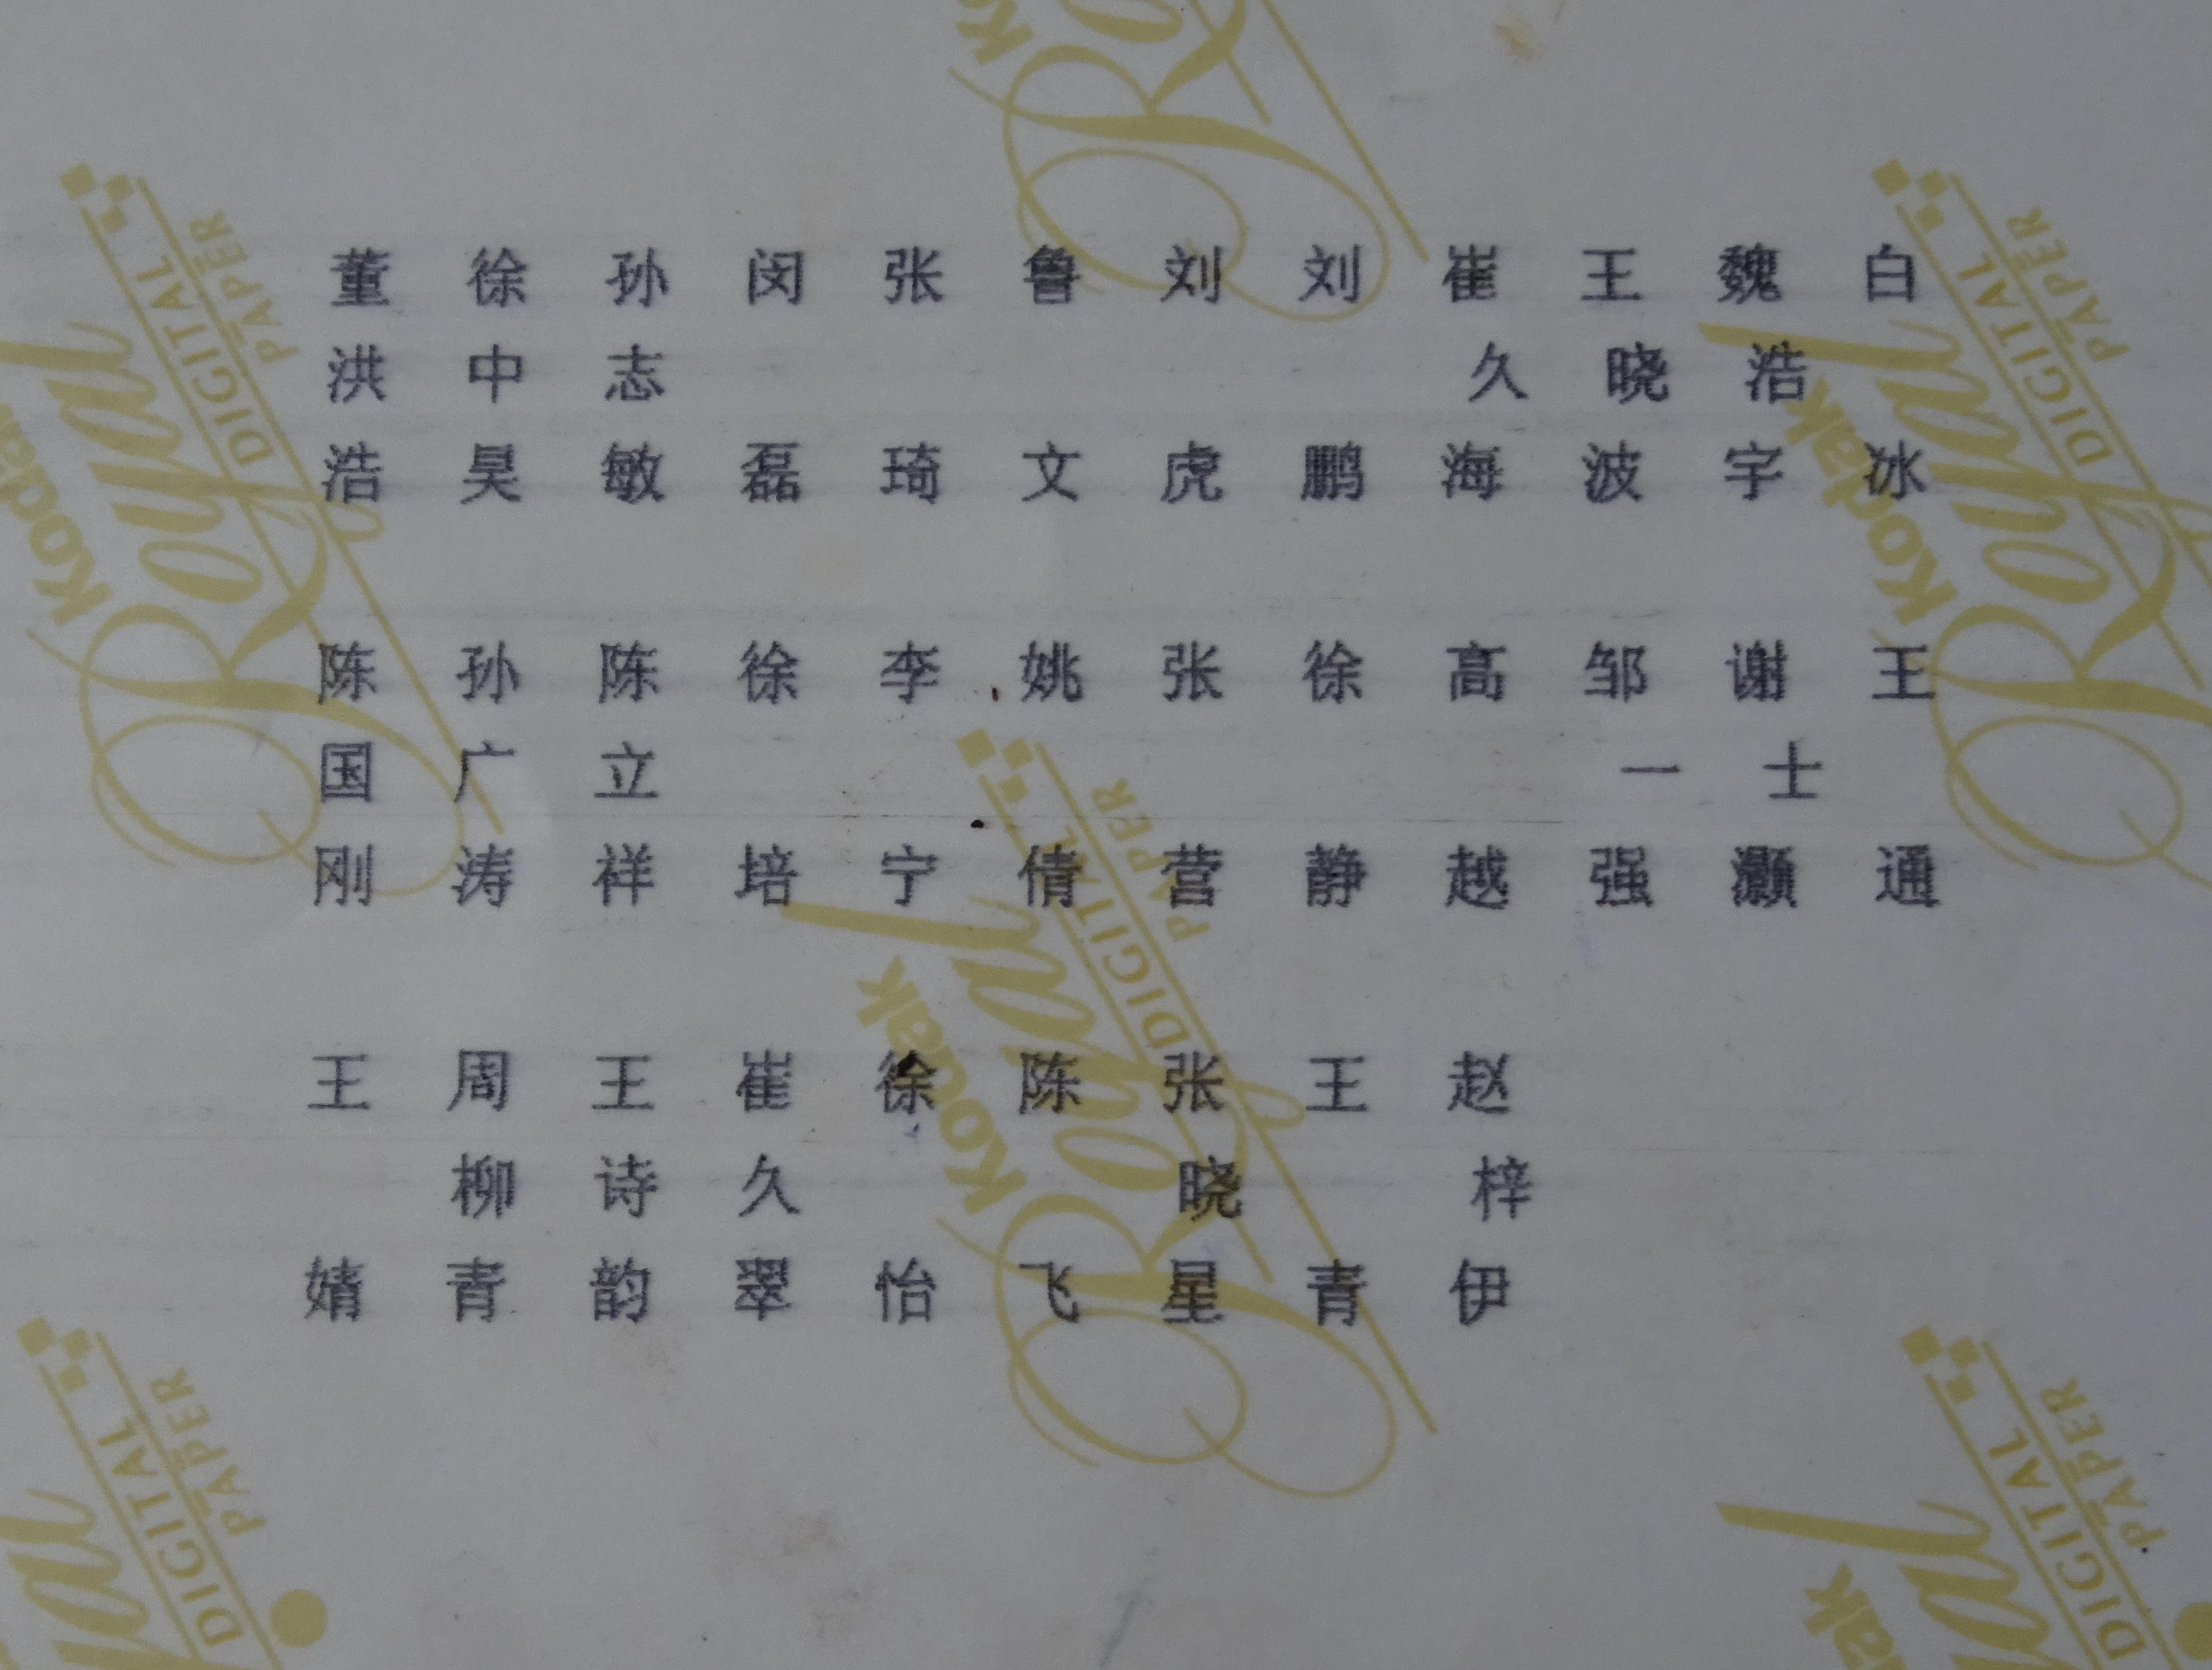 董 徐 孙 闵 张 鲁 刘 刘 崔 王 魏 白
洪 中 志 久 晓 浩
浩 昊 敏 磊 琦 文 虎 鹏 海 波 宇 冰
陈 孙 陈 徐 李 姚 张 徐 高 邹 谢 王
国 广 立 一 士
刚 涛 祥 培 宁 倩 营 静 越 强 灏 通
王 周 王 崔 徐 陈 张 王 赵
柳 诗 久 晓 梓
婧 青 韵 翠 怡 飞 星 青 伊
Kodak
Royal
DIGITAL
PAPER
Kodak
Royal
DIGITAL
PAPER
Kodak
Royal
DIGITAL
PAPER
DIGITAL
PAPER
Kodak
DIGITAL
PAPER